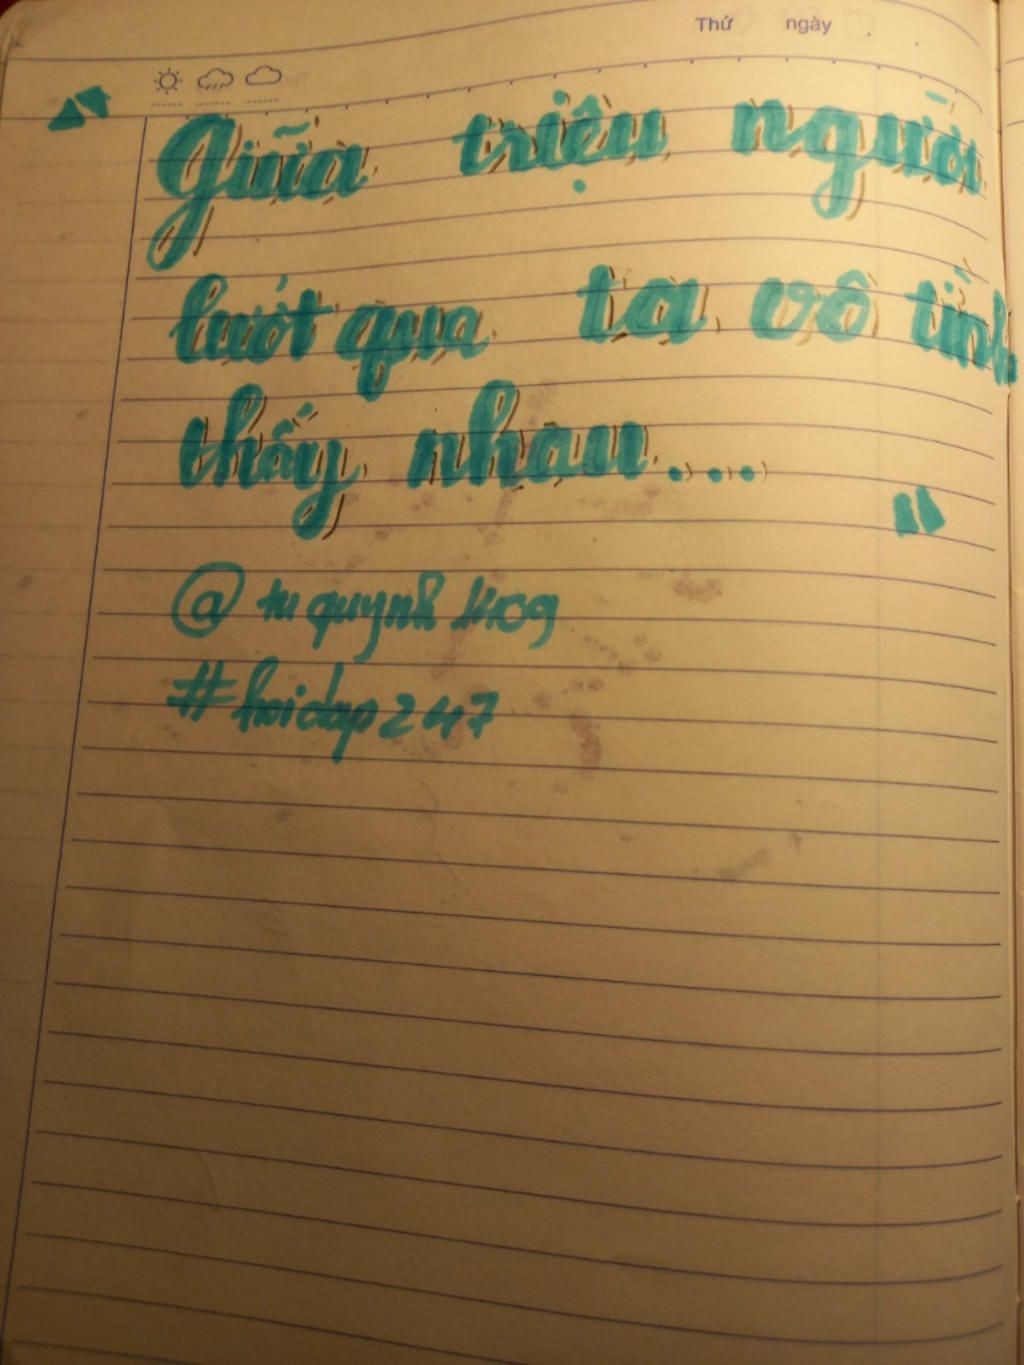 Thứ ngày
"Giữa triệu người
lướt qua ta vô tình
thấy nhau...."
@tuquynh1409
#hoidap247